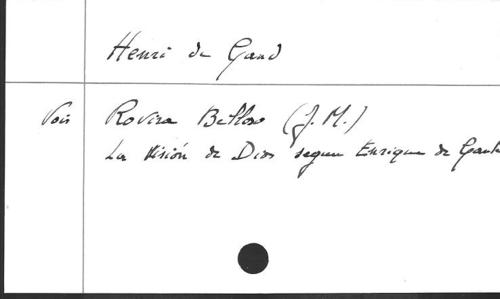 Henri de Gand
Voir Rovira Belloso (J. M.)
La Visión de Dios segun Enrique de Gante